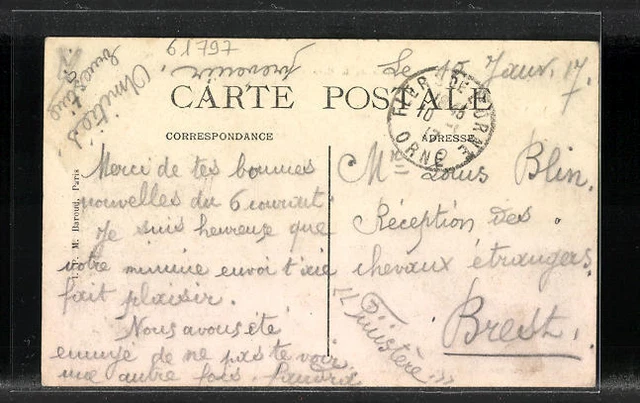 61797
prévenir.
Amitiés
Ernestine
Le 10 Janv. 17.
CARTE POSTALE
CORRESPONDANCE
ADRESSE
ORNE
Merci de tes bonnes
nouvelles du 6 courant.
Je suis heureuse que
votre minime envoi t'aie
fait plaisir.
Nous avons été
ennuyé de ne pas te voir
une autre fois.
Mr Louis Blin.
Réception des
chevaux étrangers.
Brest.
(Finistère)
I. P. M. Baroud, Paris